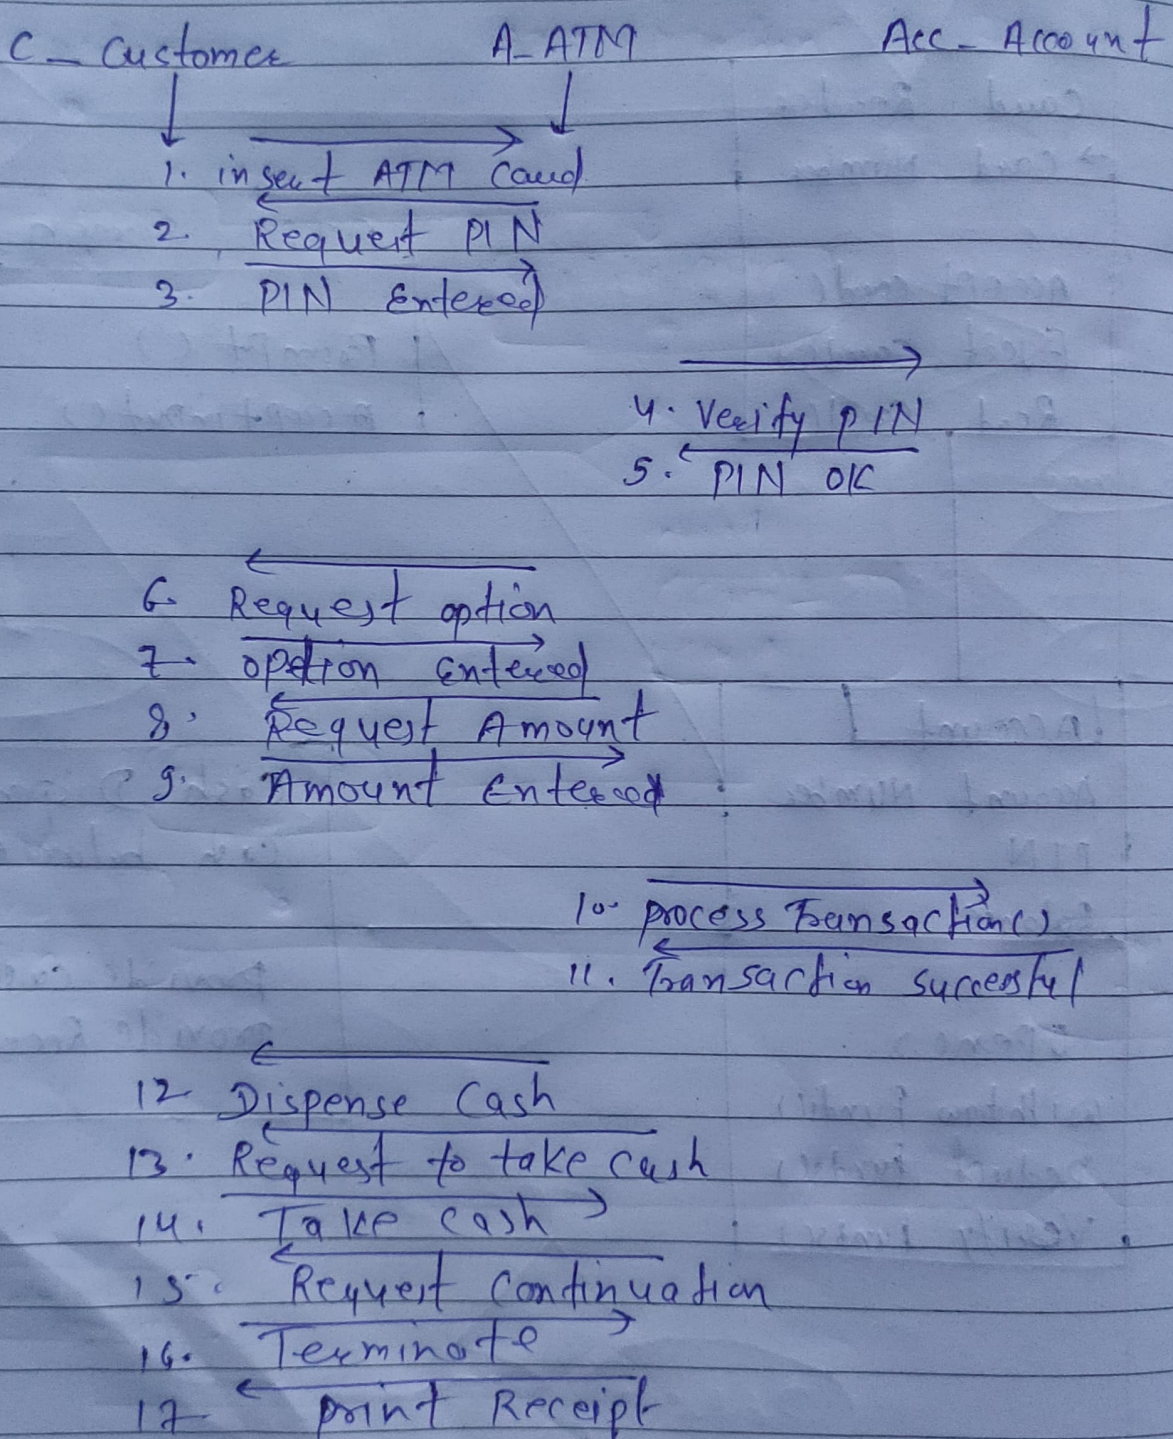 C_ Customer A_ATM Acc_ Account
1. insert ATM Card
2. Request PIN
3. PIN Entered
4. Verify PIN
5. PIN OK
6. Request option
7. option Entered
8. Request Amount
9. Amount Entered
10. process Transaction()
11. Transaction successful
12 Dispense Cash
13. Request to take cash
14. Take cash
15. Request Continuation
16. Terminate
17 print Receipt